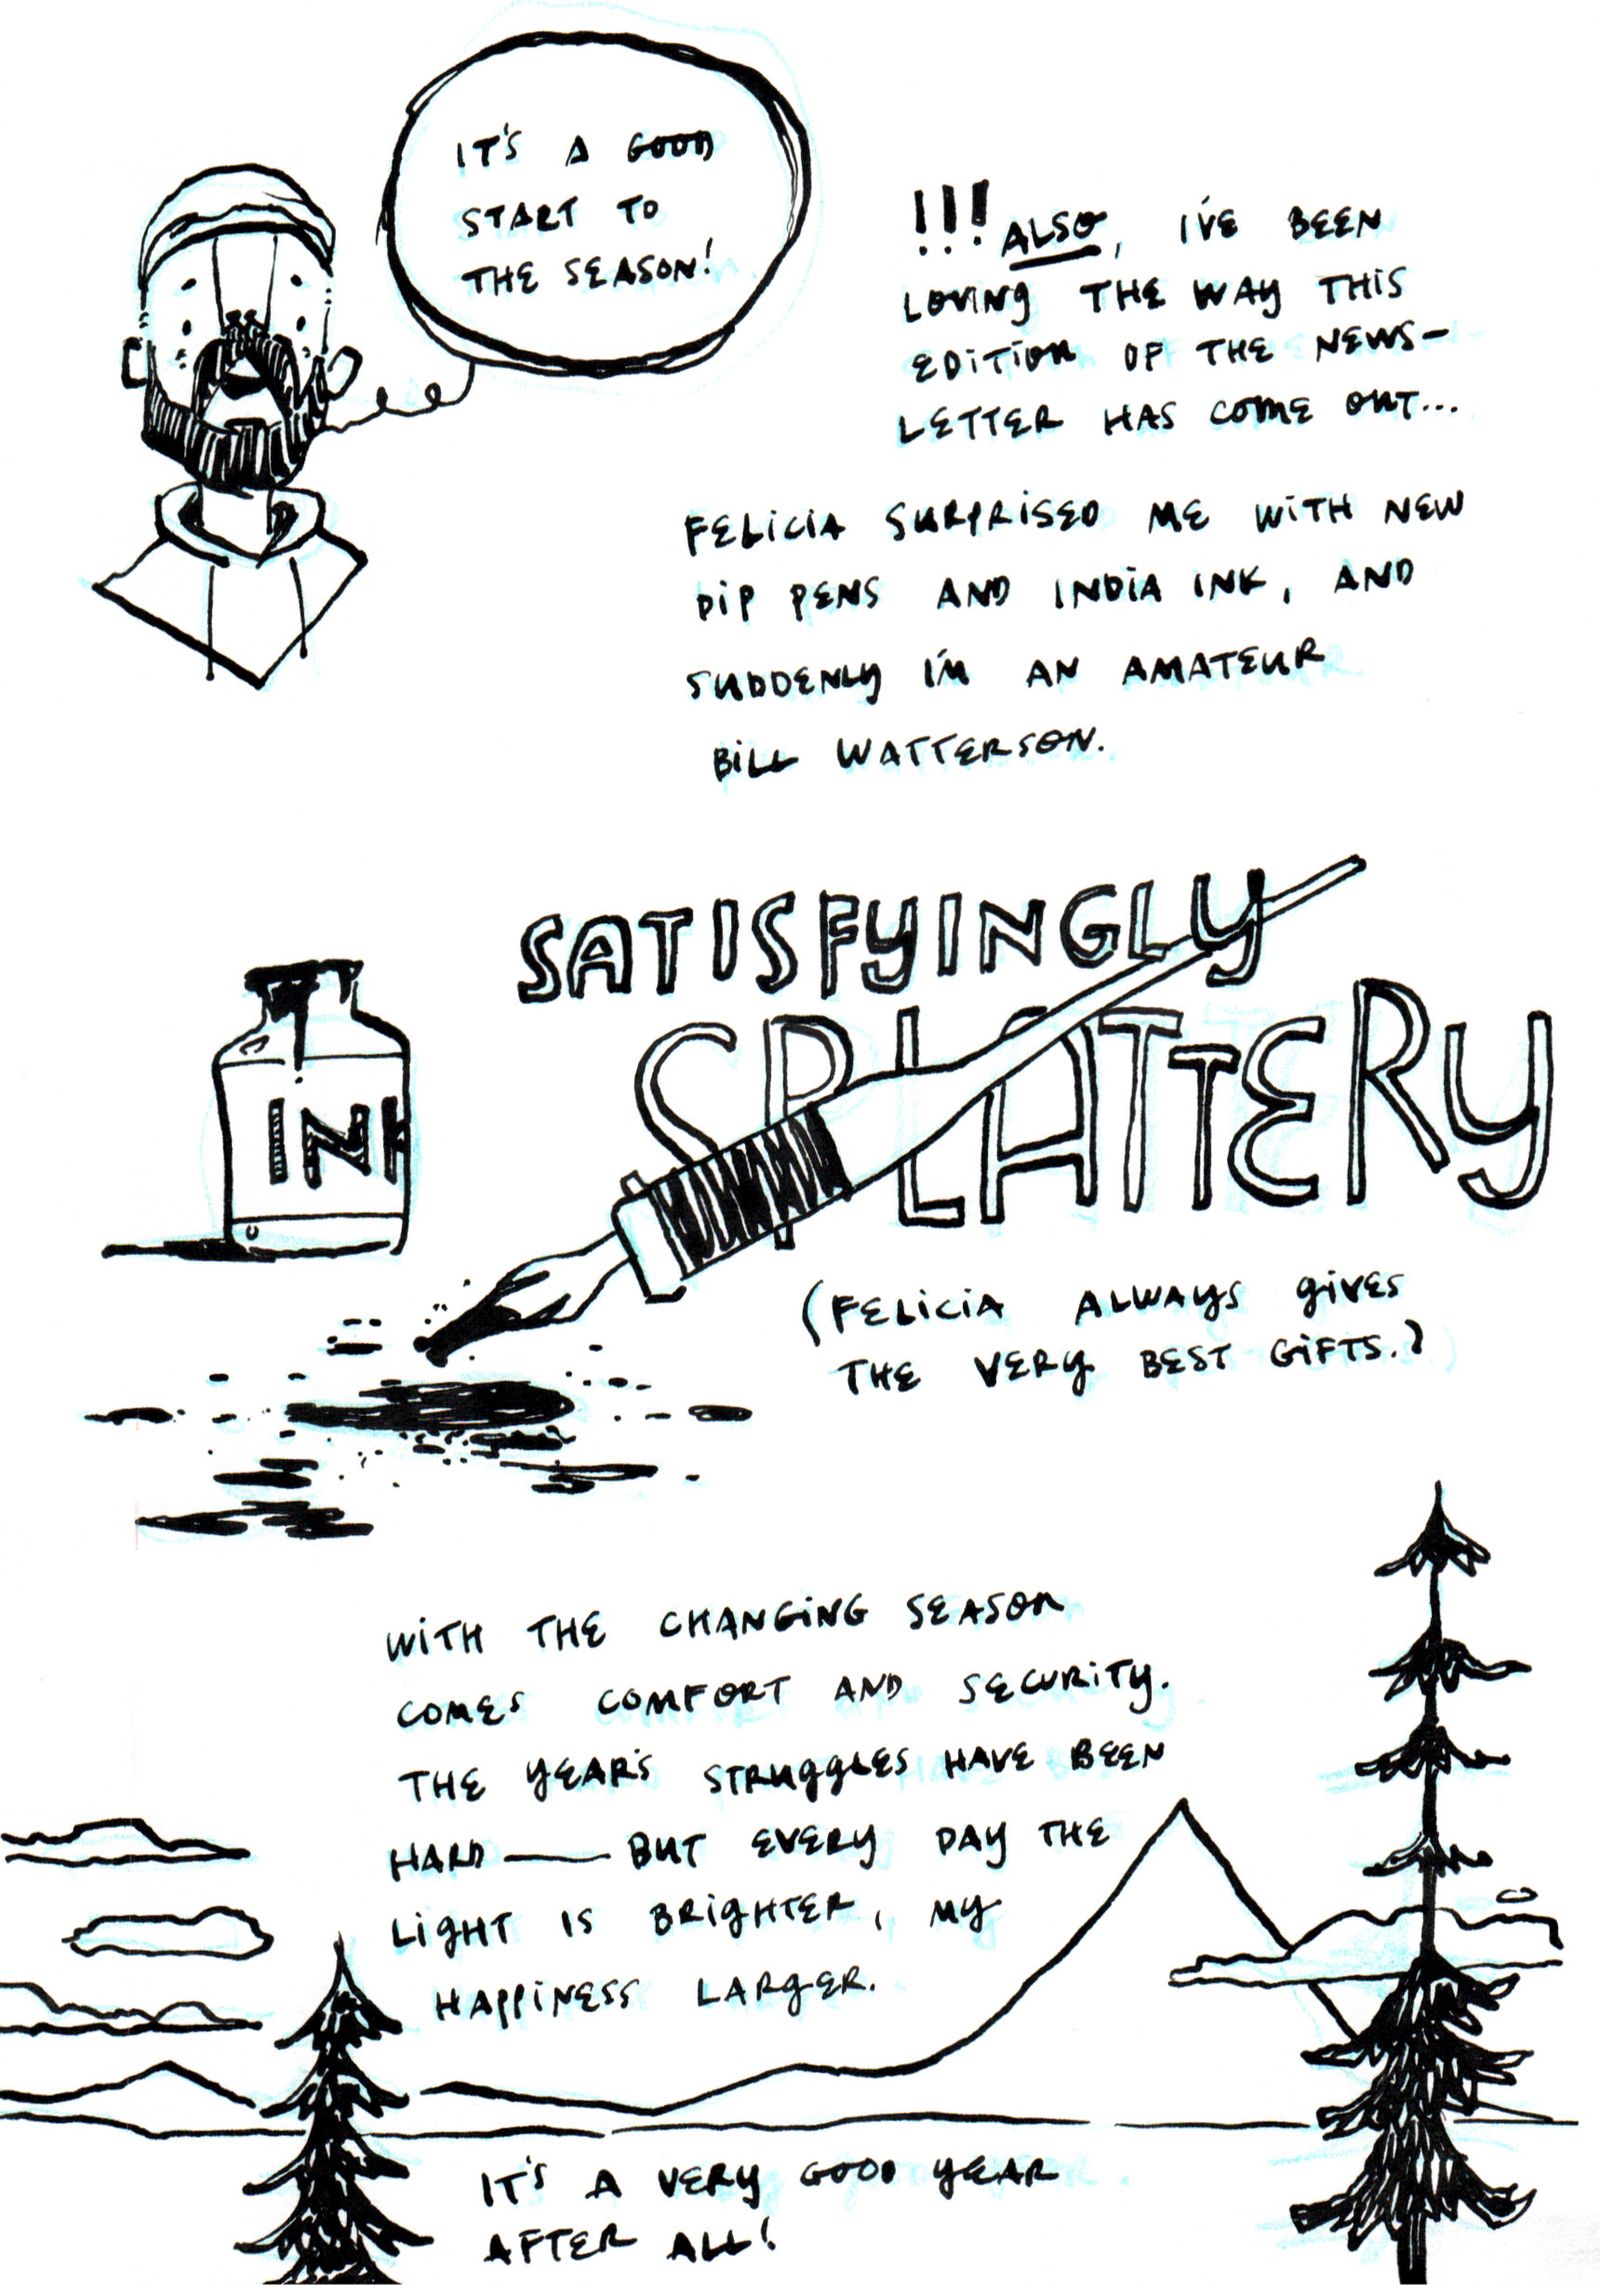 IT'S A GOOD
START TO
THE SEASON!
!!! ALSO, I'VE BEEN
LOVING THE WAY THIS
EDITION OF THE NEWS-
LETTER HAS COME OUT...
FELICIA SURPRISED ME WITH NEW
DIP PENS AND INDIA INK, AND
SUDDENLY I'M AN AMATEUR
BILL WATTERSON.
SATISFYINGLY
SPLATTERY
INK
(FELICIA ALWAYS GIVES
THE VERY BEST GIFTS.)
WITH THE CHANGING SEASON
COMES COMFORT AND SECURITY.
THE YEAR'S STRUGGLES HAVE BEEN
HARD — BUT EVERY DAY THE
LIGHT IS BRIGHTER, MY
HAPPINESS LARGER.
IT'S A VERY GOOD YEAR
AFTER ALL!